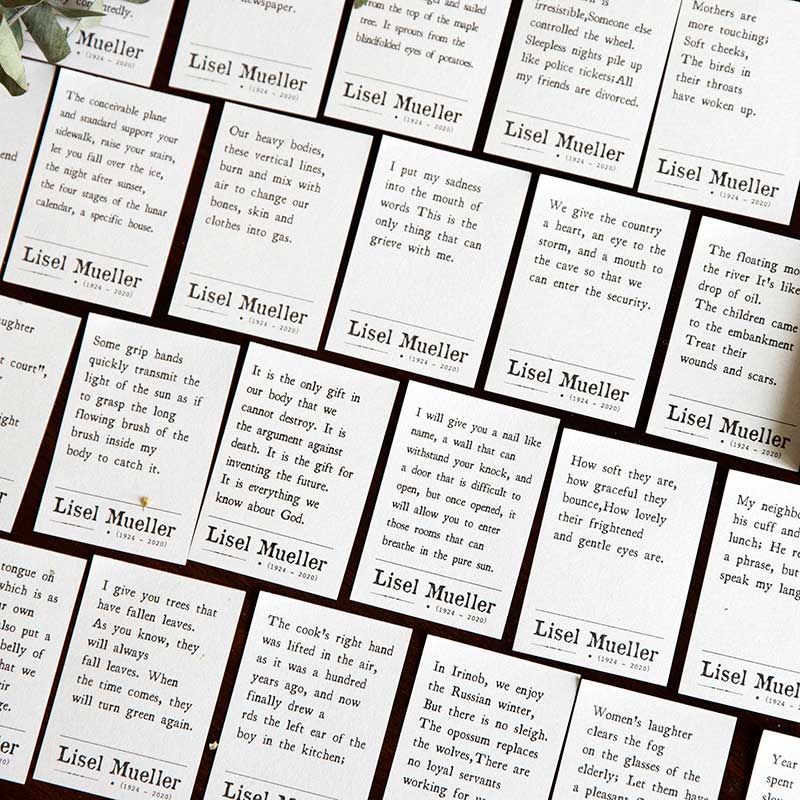 newspaper.
Lisel Mueller
(1924 - 2020)
Mueller
(1924 - 2020)
and sailed
from the top of the maple
tree. It sprouts from the
blindfolded eyes of potatoes.
Lisel Mueller
(1924 - 2020)
irresistible,Someone else
controlled the wheel.
Sleepless nights pile up
like police tickets;All
my friends are divorced.
Lisel Mueller
(1924 - 2020)
Mothers are
more touching;
Soft cheeks,
The birds in
their throats
have woken up.
Lisel Mueller
(1924 - 2020)
The conceivable plane
and standard support your
sidewalk, raise your stairs,
let you fall over the ice,
the night after sunset,
the four stages of the lunar
calendar, a specific house.
Lisel Mueller
(1924 - 2020)
Our heavy bodies,
these vertical lines,
burn and mix with
air to change our
bones, skin and
clothes into gas.
Lisel Mueller
(1924 - 2020)
I put my sadness
into the mouth of
words This is the
only thing that can
grieve with me.
Lisel Mueller
(1924 - 2020)
We give the country
a heart, an eye to the
storm, and a mouth to
the cave so that we
can enter the security.
Lisel Mueller
(1924 - 2020)
The floating
the river It's like
drop of oil.
The children came
to the embankment
Treat their
wounds and scars.
Lisel Mueller
(1924 - 2020)
court",
Some grip hands
quickly transmit the
light of the sun as if
to grasp the long
flowing brush of the
brush inside my
body to catch it.
Lisel Mueller
(1924 - 2020)
It is the only gift in
our body that we
cannot destroy. It is
the argument against
death. It is the gift for
inventing the future.
It is everything we
know about God.
Lisel Mueller
(1924 - 2020)
I will give you a nail like
name, a wall that can
withstand your knock, and
a door that is difficult to
open, but once opened, it
will allow you to enter
those rooms that can
breathe in the pure sun.
Lisel Mueller
(1924 - 2020)
How soft they are,
how graceful they
bounce,How lovely
their frightened
and gentle eyes are.
Lisel Mueller
(1924 - 2020)
My
his cuff and
lunch; He
a phrase, but
speak my
Lisel
(1924 - 2020)
tongue on
which is as
own
also put a
belly of
that we
I give you trees that
have fallen leaves.
As you know, they
will always
fall leaves. When
the time comes, they
will turn green again.
Lisel Mueller
(1924 - 2020)
The cook's right hand
was lifted in the air,
as it was a hundred
years ago, and now
finally drew a
rds the left ear of the
boy in the kitchen;
Lisel Mueller
In Irinob, we enjoy
the Russian winter,
But there is no sleigh.
The opossum replaces
the wolves,There are
no loyal servants
working for
Women's laughter
clears the fog
on the glasses of the
elderly; Let them have
a pleasant
Year
spent